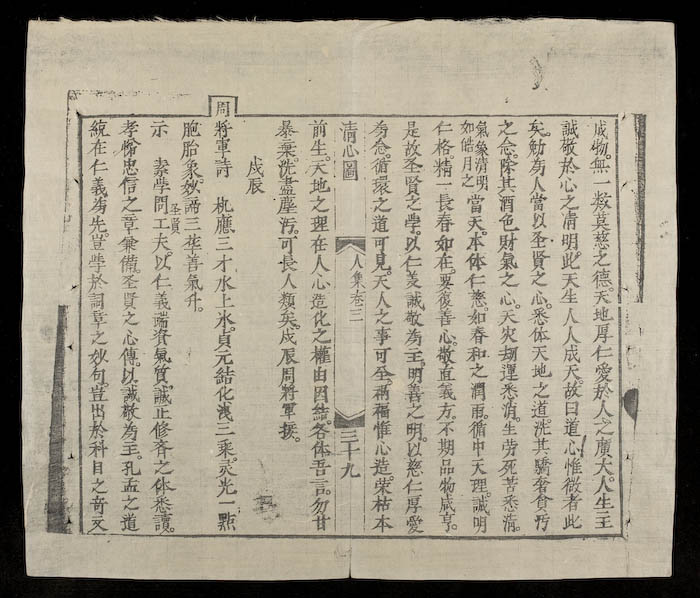 成物。無一殺莫慈之德。天地厚仁愛於人之廣大。人生主
誠敬於心之清明。此天生人人成天。故曰道心惟微者此
矣。勅為人當以圣賢之心。悉体天地之道。洗其驕奢貪污
之念。除其酒色財氣之心。天灾刼運悉消。生劳死苦悉清。
氣象清明如皓月之當天。本体仁慈。如春和之潤雨。循中天理。誠明
仁格。精一長春如在。要復善心。敬直義方。不期品物咸亨。
是故圣賢之學。以仁義誠敬為主。明善之明。以慈仁厚愛
為念。循環之道可見。天人之事可全。禍福惟心造。荣枯本
清心圖
人集卷三
三十九
前生。天地之理在人心。造化之權由因結。各体吾言。勿甘
暴棄。洗盡塵污。可長人類矣。戍辰周將軍援。
戍辰
周將軍詩 杋應三才水上氷。貞元結化浅三乘。灵光一點
胞胎象。妙諦三華善氣升。
示 圣賢素學問工夫。以仁義端資氣質。誠正修斉之体悉讀。
孝悌忠信之章兼備。圣賢之心傳。以誠敬為主。孔孟之道
統。在仁義為先。豈學於詞章之妙句。豈出於科目之奇文